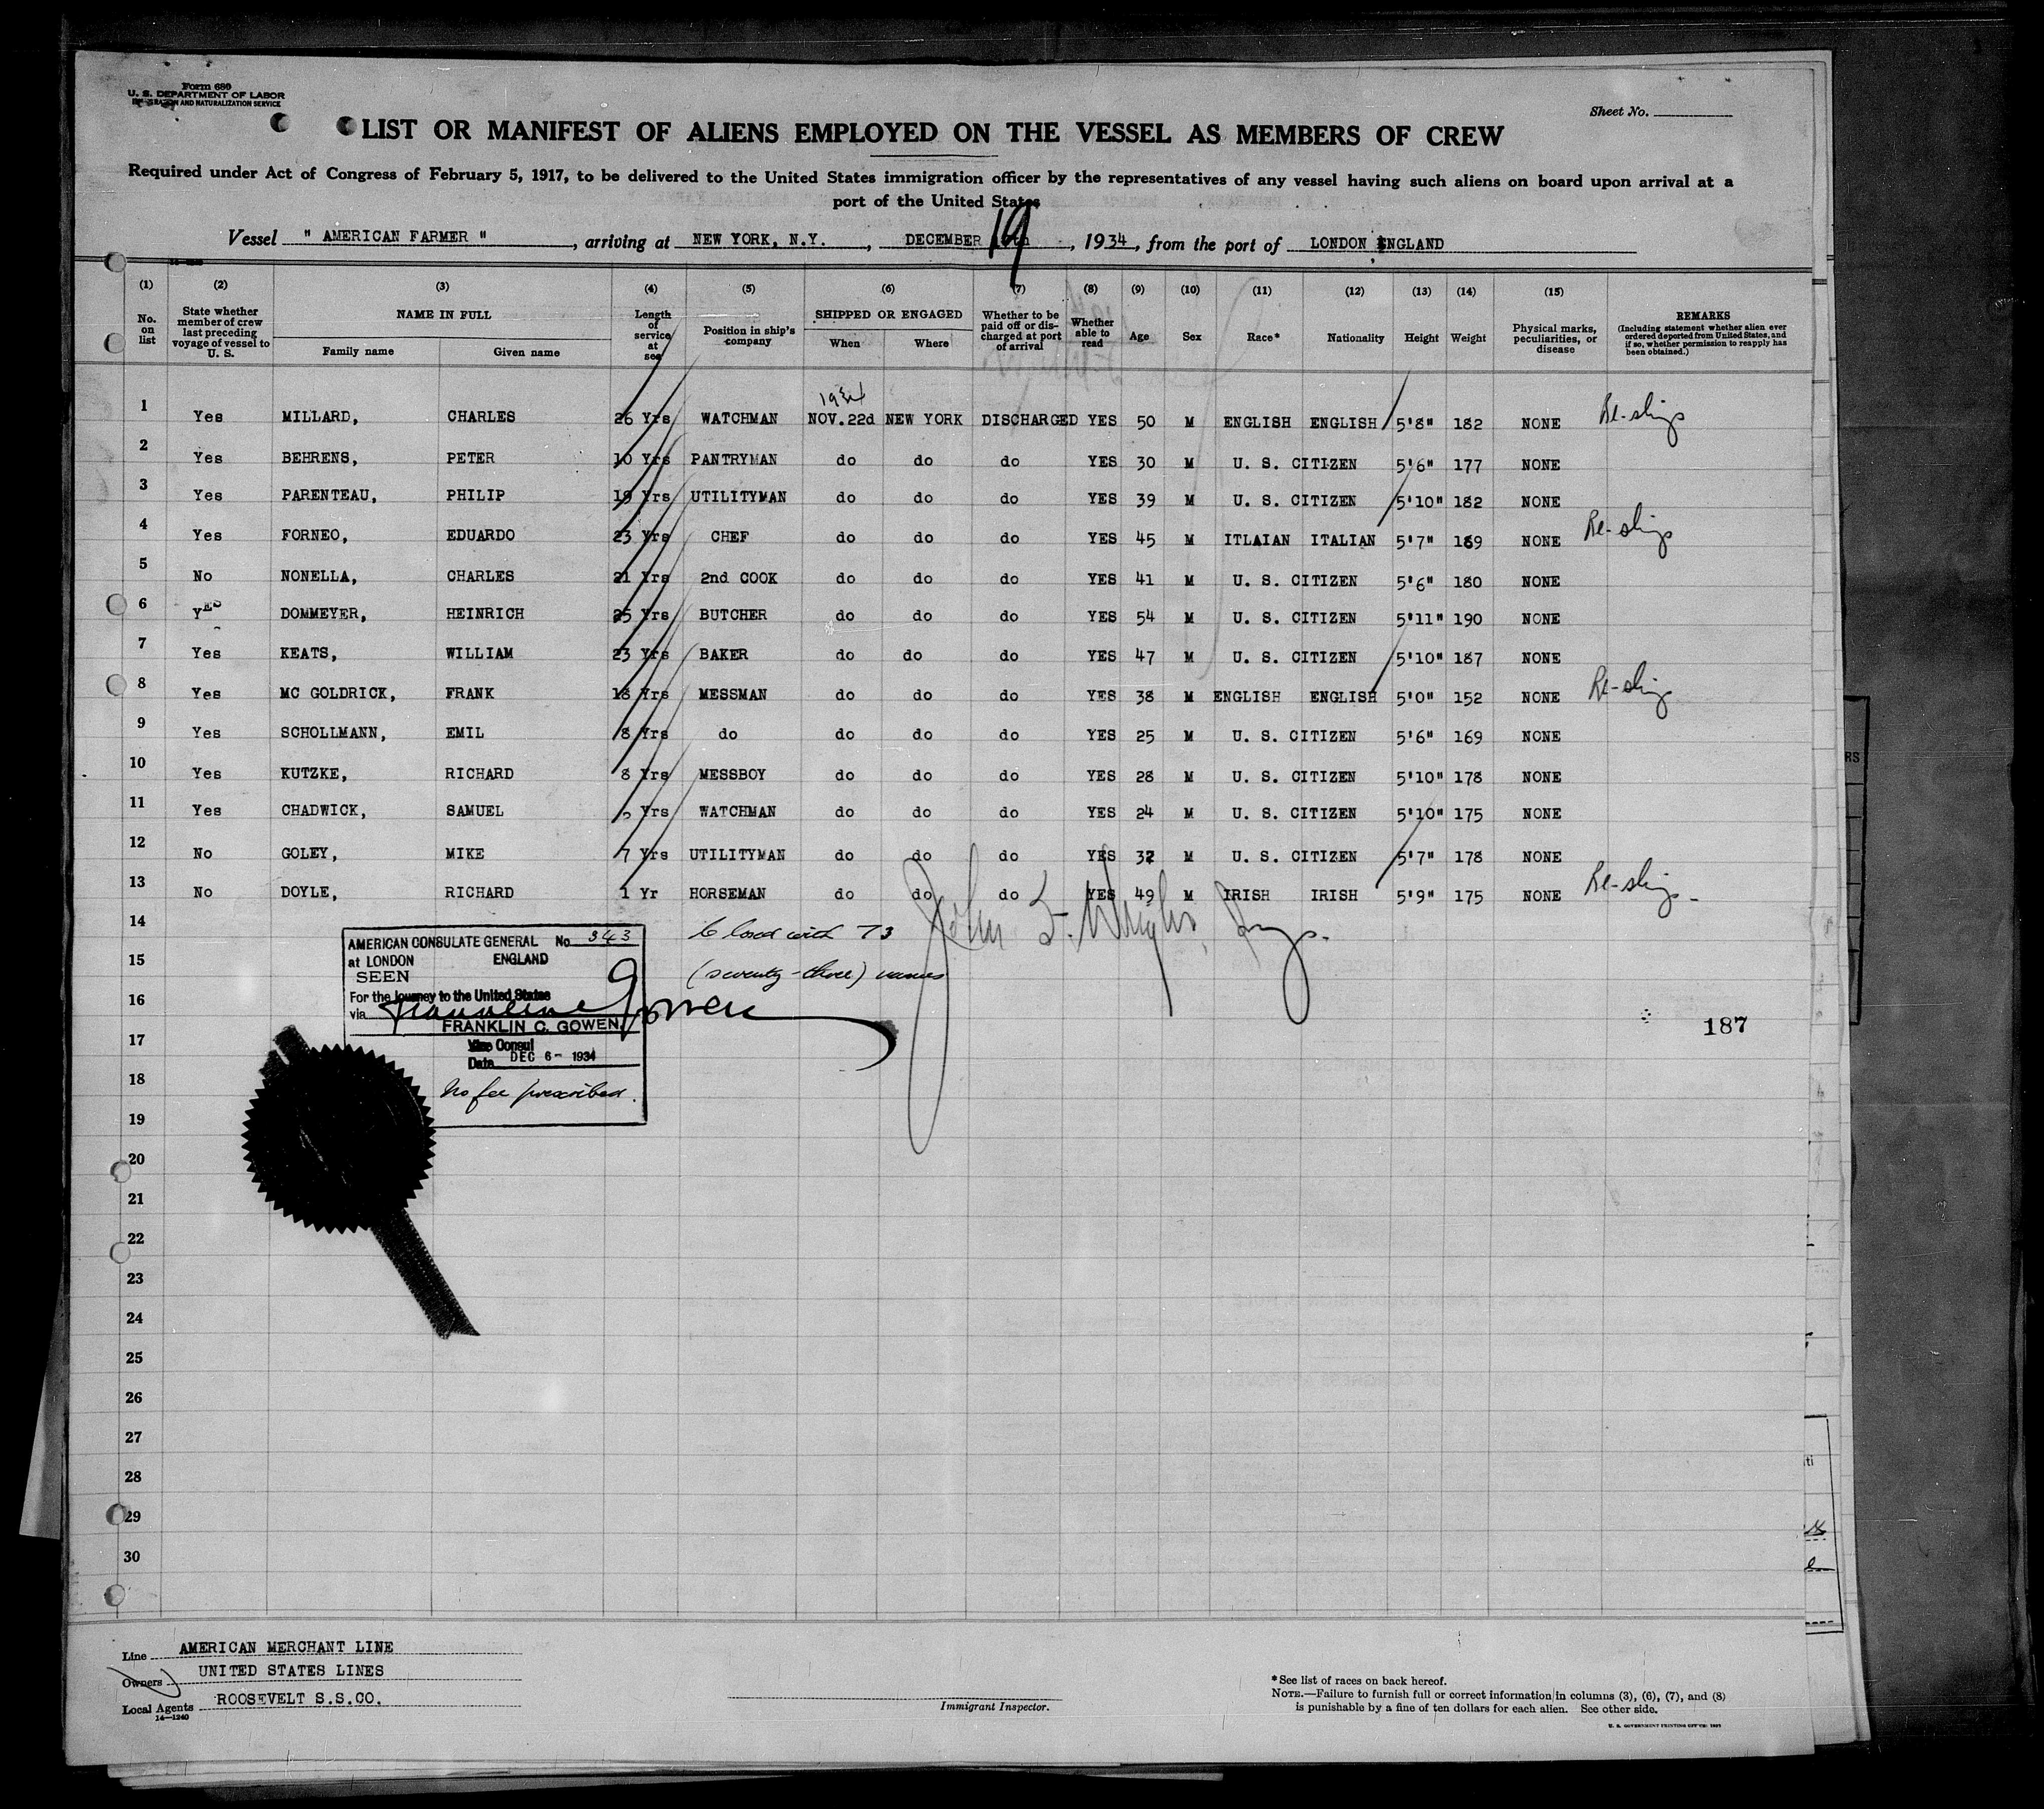 Form 680
U. S. DEPARTMENT OF LABOR
IMMIGRATION AND NATURALIZATION SERVICE
Sheet No.
LIST OR MANIFEST OF ALIENS EMPLOYED ON THE VESSEL AS MEMBERS OF CREW
Required under Act of Congress of February 5, 1917, to be delivered to the United States immigration officer by the representatives of any vessel having such aliens on board upon arrival at a
port of the United States
Vessel " AMERICAN FARMER ", arriving at NEW YORK, N.Y., DECEMBER 19, 1934, from the port of LONDON ENGLAND
(1) (2) (3) (4) (5) (6) (7) (8) (9) (10) (11) (12) (13) (14) (15)
No. on list
State whether member of crew last preceding voyage of vessel to U. S.
NAME IN FULL
Family name Given name
Length of service at sea
Position in ship's company
SHIPPED OR ENGAGED
When Where
Whether to be paid off or discharged at port of arrival
Whether able to read
Age Sex Race* Nationality Height Weight
Physical marks, peculiarities, or disease
REMARKS
(Including statement whether alien ever ordered deported from United States, and if so, whether permission to reapply has been obtained.)
1934
1 Yes MILLARD, CHARLES 26 Yrs WATCHMAN NOV.22d NEW YORK DISCHARGED YES 50 M ENGLISH ENGLISH 5'8" 182 NONE
2 Yes BEHRENS, PETER 10 Yrs PANTRYMAN do do do YES 30 M U. S. CITIZEN 5'6" 177 NONE
3 Yes PARENTEAU, PHILIP 19 Yrs UTILITYMAN do do do YES 39 M U. S. CITIZEN 5'10" 182 NONE
4 Yes FORNEO, EDUARDO 23 Yrs CHEF do do do YES 45 M ITLAIAN ITALIAN 5'7" 169 NONE
5 No NONELLA, CHARLES 21 Yrs 2nd COOK do do do YES 41 M U. S. CITIZEN 5'6" 180 NONE
6 YES DOMMEYER, HEINRICH 25 Yrs BUTCHER do do do YES 54 M U. S. CITIZEN 5'11" 190 NONE
7 Yes KEATS, WILLIAM 23 Yrs BAKER do do do YES 47 M U. S. CITIZEN 5'10" 187 NONE
8 Yes MC GOLDRICK, FRANK 18 Yrs MESSMAN do do do YES 38 M ENGLISH ENGLISH 5'0" 152 NONE
9 Yes SCHOLLMANN, EMIL 8 Yrs do do do do YES 25 M U. S. CITIZEN 5'6" 169 NONE
10 Yes KUTZKE, RICHARD 8 Yrs MESSBOY do do do YES 28 M U. S. CITIZEN 5'10" 178 NONE
11 Yes CHADWICK, SAMUEL Yrs WATCHMAN do do do YES 24 M U. S. CITIZEN 5'10" 175 NONE
12 No GOLEY, MIKE 7 Yrs UTILITYMAN do do do YES 32 M U. S. CITIZEN 5'7" 178 NONE
13 No DOYLE, RICHARD 1 Yr HORSEMAN do do do YES 49 M IRISH IRISH 5'9" 175 NONE
14
15
16
17
18
19
20
21
22
23
24
25
26
27
28
29
30
Closed with 73
(seventy-three) names
AMERICAN CONSULATE GENERAL No. 343
at LONDON ENGLAND
SEEN
For the journey to the United States
via
FRANKLIN C. GOWEN
Vice Consul
Date DEC 6- 1934
No fee prescribed.
187
Line AMERICAN MERCHANT LINE
Owners UNITED STATES LINES
Local Agents ROOSEVELT S.S.CO.
14—1240
Immigrant Inspector.
*See list of races on back hereof.
NOTE.—Failure to furnish full or correct information in columns (3), (6), (7), and (8)
is punishable by a fine of ten dollars for each alien. See other side.